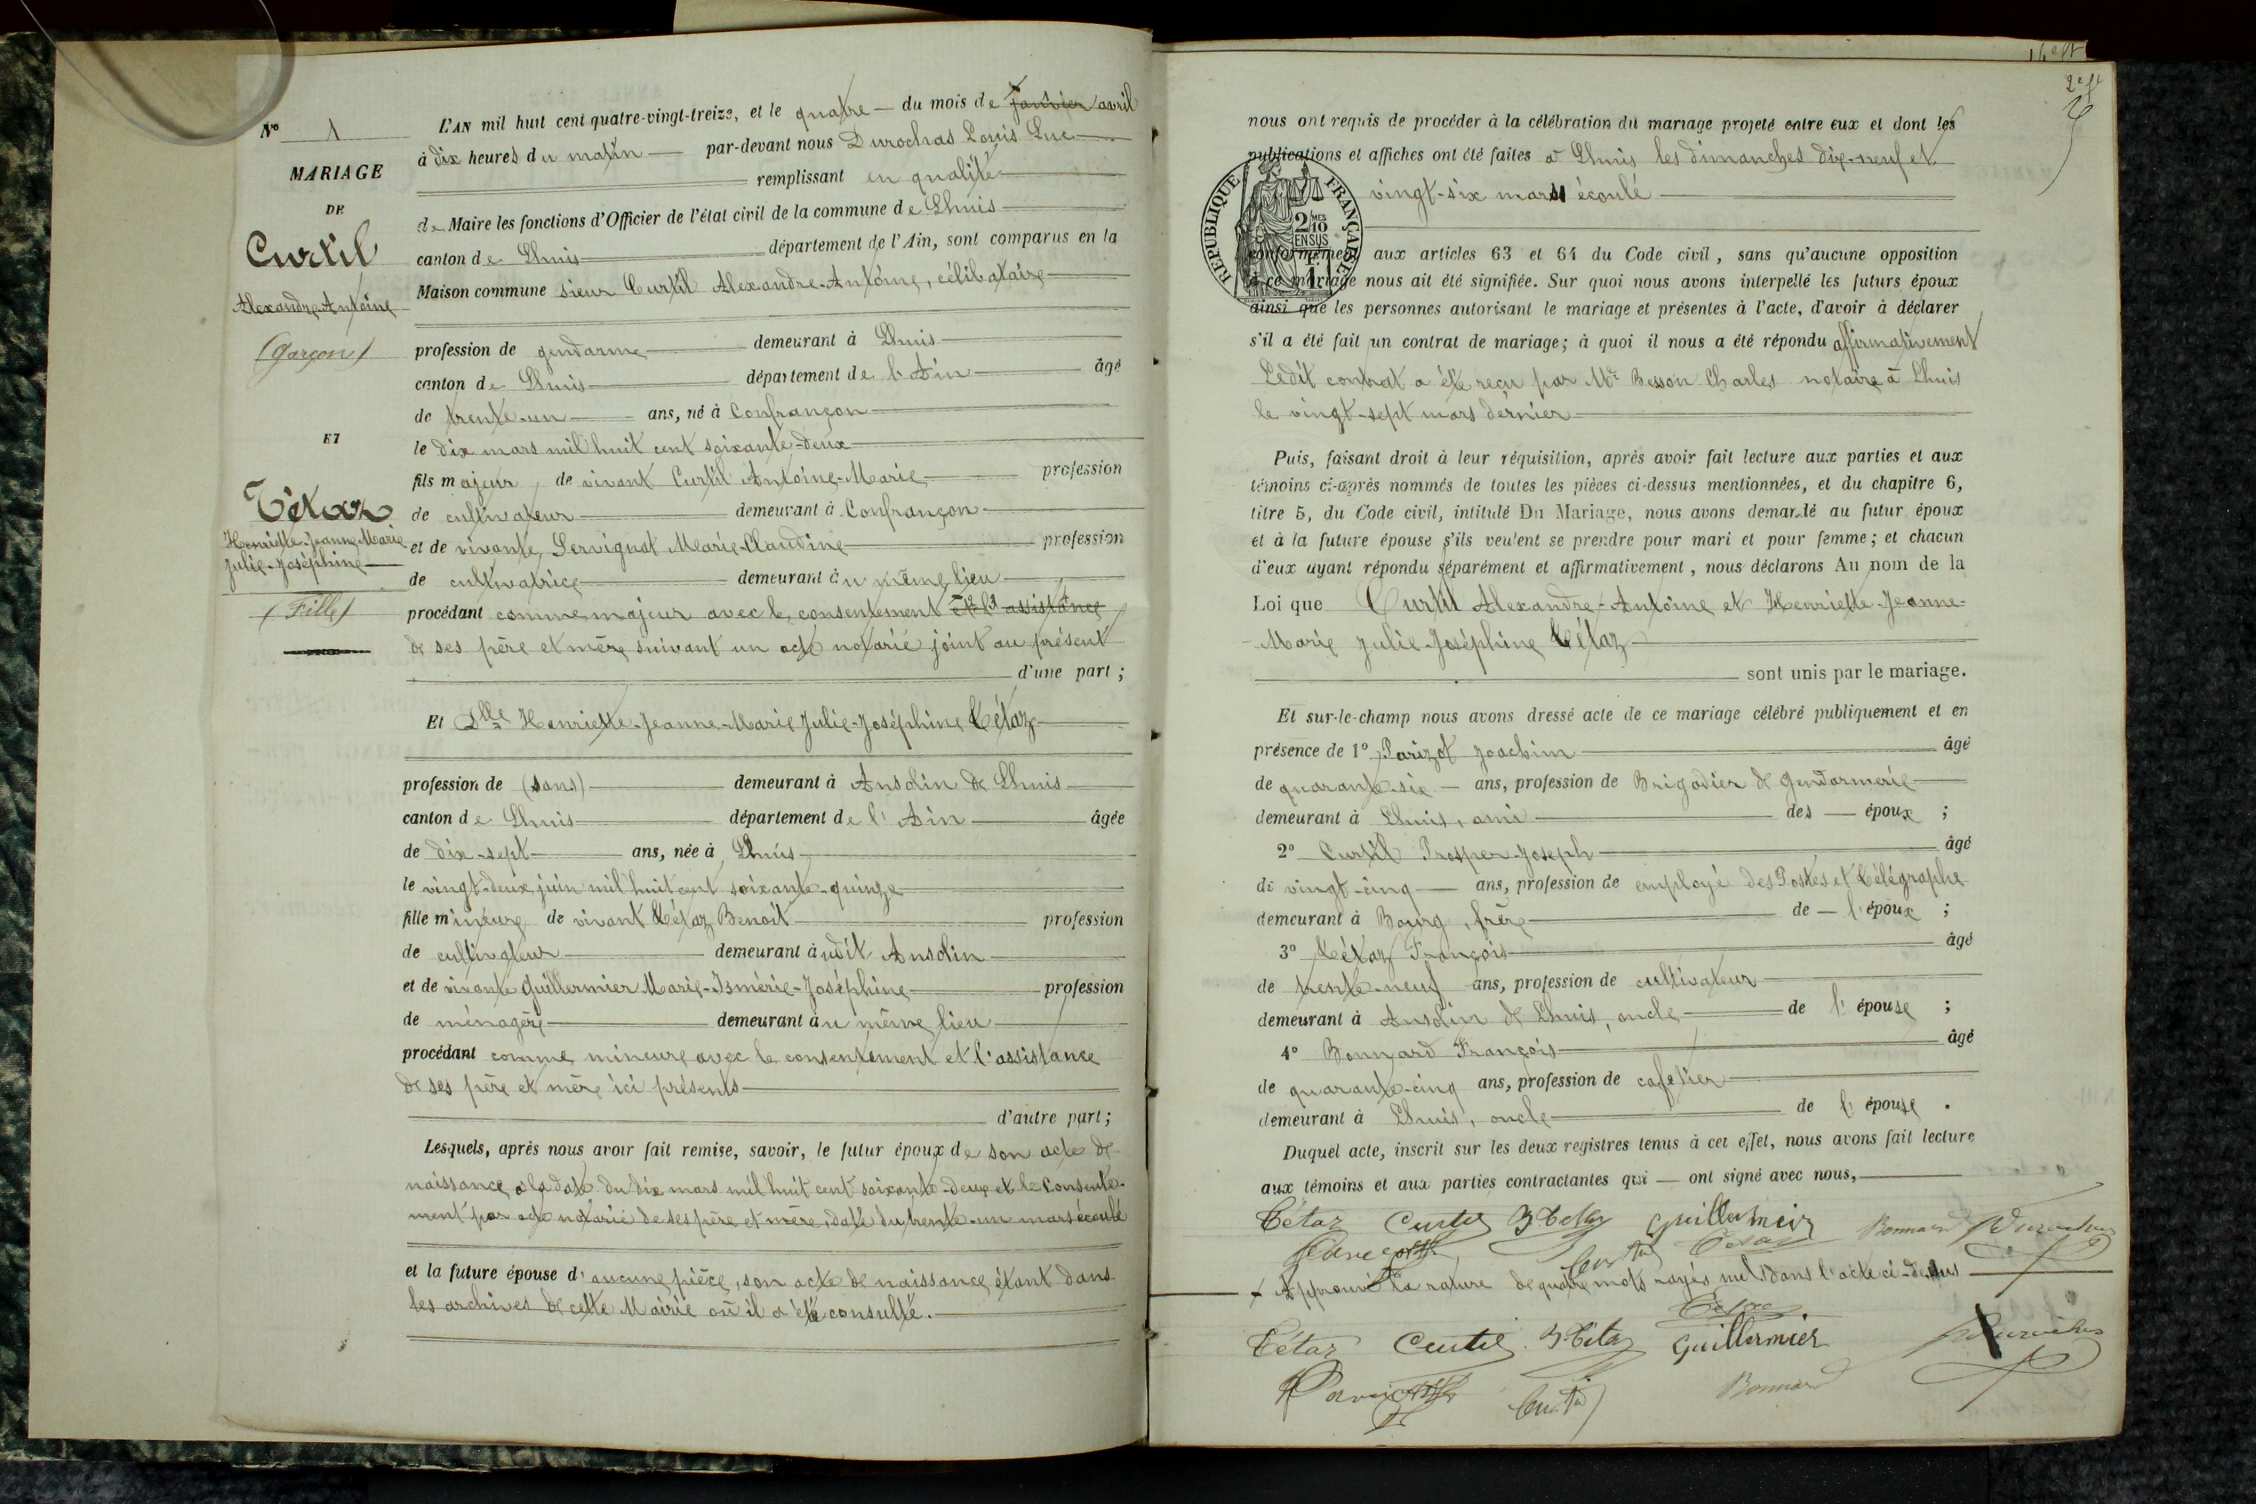 N° 1
MARIAGE
DE
Curtil
Alexandre-Antoine
(Garçon)
ET
Tétaz
Henriette-Jeanne-Marie
Julie-Joséphine
(Fille)
L'AN mil huit cent quatre-vingt-treize, et le quatre du mois de janvier avril
à dix heures du matin par-devant nous Durochas Louis Luc
remplissant en qualité
de Maire les fonctions d'Officier de l'état civil de la commune de Lhuis
canton de Lhuis département de l'Ain, sont comparus en la
Maison commune sieur Curtil Alexandre-Antoine, célibataire
profession de gendarme demeurant à Lhuis
canton de Lhuis département de l'Ain âgé
de trente-un ans, né à Confrançon
le dix mars mil huit cent soixante-deux
fils majeur, de vivant Curtil Antoine-Marie profession
de cultivateur demeurant à Confrançon
et de vivante Servignat Marie-Claudine profession
de cultivatrice demeurant au même lieu
procédant comme majeur avec le consentement et l'assistance
de ses père et mère suivant un acte notarié joint au présent
d'une part ;
Et Dlle Henriette-Jeanne-Marie Julie-Joséphine Tétaz
profession de (sans) demeurant à Ansolin de Lhuis
canton de Lhuis département de l'Ain âgée
de dix-sept ans, née à Lhuis
le vingt-deux juin mil huit cent soixante-quinze
fille mineure de vivant Tétaz Benoit profession
de cultivateur demeurant audit Ansolin
et de vivante Guillermier Marie-Ismérie-Joséphine profession
de ménagère demeurant au même lieu
procédant comme mineure avec le consentement et l'assistance
de ses père et mère ici présents
d'autre part ;
Lesquels, après nous avoir fait remise, savoir, le futur époux de son acte de
naissance à la date du dix mars mil huit cent soixante-deux et le consente-
ment par acte notarié de ses père et mère, daté du trente-un mars écoulé
et la future épouse d'aucune pièce, son acte de naissance étant dans
les archives de cette Mairie où il a été consulté.
2e ft
nous ont requis de procéder à la célébration du mariage projeté entre eux et dont les
publications et affiches ont été faites à Lhuis les dimanches dix-neuf et
vingt-six mars écoulé
REPUBLIQUE FRANÇAISE
2/10 EN SUS
conformément aux articles 63 et 64 du Code civil, sans qu'aucune opposition
à ce mariage nous ait été signifiée. Sur quoi nous avons interpellé les futurs époux
ainsi que les personnes autorisant le mariage et présentes à l'acte, d'avoir à déclarer
s'il a été fait un contrat de mariage ; à quoi il nous a été répondu affirmativement
Ledit contrat a été reçu par Me Besson Charles notaire à Lhuis
le vingt-sept mars dernier
Puis, faisant droit à leur réquisition, après avoir fait lecture aux parties et aux
témoins ci-après nommés de toutes les pièces ci-dessus mentionnées, et du chapitre 6,
titre 5, du Code civil, intitulé Du Mariage, nous avons demandé au futur époux
et à la future épouse s'ils veulent se prendre pour mari et pour femme ; et chacun
d'eux ayant répondu séparément et affirmativement, nous déclarons Au nom de la
Loi que Curtil Alexandre-Antoine et Henriette-Jeanne-
Marie Julie-Joséphine Tétaz
sont unis par le mariage.
Et sur-le-champ nous avons dressé acte de ce mariage célébré publiquement et en
présence de 1° Parizot Joachim âgé
de quarante-six ans, profession de Brigadier de gendarmerie
demeurant à Lhuis, ami des époux ;
2° Curtil Prosper-Joseph âgé
de vingt-cinq ans, profession de employé des Postes et Télégraphe
demeurant à Bourg, frère de l'époux ;
3° Tétaz François âgé
de trente-neuf ans, profession de cultivateur
demeurant à Ansolin de Lhuis, oncle de l'épouse ;
4° Bonnard François âgé
de quarante-cinq ans, profession de cafetier
demeurant à Lhuis, oncle de l'épouse.
Duquel acte, inscrit sur les deux registres tenus à cet effet, nous avons fait lecture
aux témoins et aux parties contractantes qui ont signé avec nous,
Tétaz Curtil Tétaz Guillermier Bonnard Durochas
Curtil Tétaz
Approuvé la rature de quatre mots rayés nuls dans l'acte ci-dessus
Tétaz
Tétaz Curtil Tétaz Guillermier Durochas
Parizot Curtil Bonnard